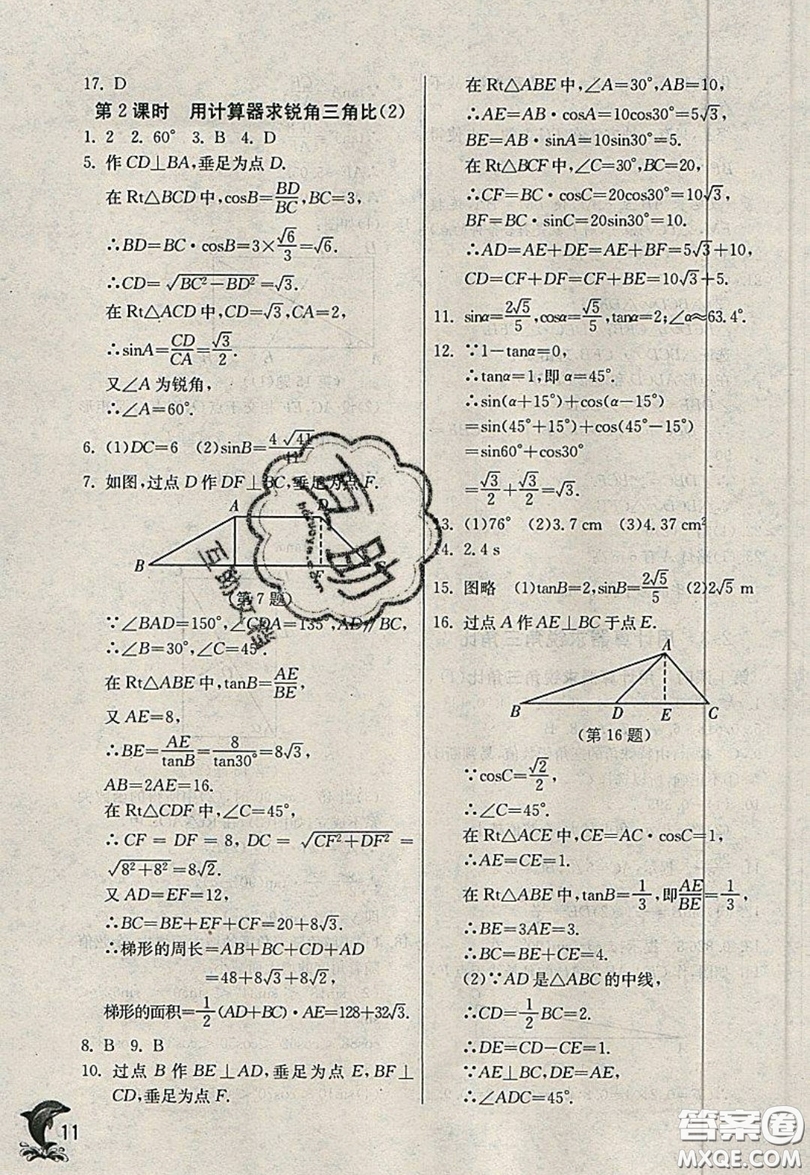 17. D
第2课时 用计算器求锐角三角比(2)
1. 2 2. 60° 3. B 4. D
5. 作CD⊥BA,垂足为点D.
在Rt△BCD中,cosB=BD/BC,BC=3,
∴BD=BC·cosB=3×√6/3=√6.
∴CD=√(BC²−BD²)=√3.
在Rt△ACD中,CD=√3,CA=2,
∴sinA=CD/CA=√3/2.
又∠A为锐角,
∴∠A=60°.
6. (1)DC=6 (2)sinB=4√41/
7. 如图,过点D作DF⊥BC,垂足为点F.
A D
B
(第7题)
∵∠BAD=150°,∠CDA=135°,AD∥BC,
∴∠B=30°,∠C=45°.
在Rt△ABE中,tanB=AE/BE,
又AE=8,
∴BE=AE/tanB=8/tan30°=8√3,
AB=2AE=16.
在Rt△CDF中,∠C=45°,
∴CF=DF=8,DC=√(CF²+DF²)=
√(8²+8²)=8√2.
又AD=EF=12,
∴BC=BE+EF+CF=20+8√3.
∴梯形的周长=AB+BC+CD+AD
=48+8√3+8√2.
梯形的面积=1/2(AD+BC)·AE=128+32√3.
8. B 9. B
10. 过点B作BE⊥AD,垂足为点E,BF⊥
CD,垂足为点F.
在Rt△ABE中,∠A=30°,AB=10,
∴AE=AB·cosA=10cos30°=5√3,
BE=AB·sinA=10sin30°=5.
在Rt△BCF中,∠C=30°,BC=20,
∴CF=BC·cosC=20cos30°=10√3,
BF=BC·sinC=20sin30°=10.
∴AD=AE+DE=AE+BF=5√3+10,
CD=CF+DF=CF+BE=10√3+5.
11. sinα=2√5/5,cosα=√5/5,tanα=2;∠α≈63.4°.
12. ∵1−tanα=0,
∴tanα=1,即α=45°.
∴sin(α+15°)+cos(α−15°)
=sin(45°+15°)+cos(45°−15°)
=sin60°+cos30°
=√3/2+√3/2=√3.
13. (1)76° (2)3.7 cm (3)4.37 cm²
14. 2.4 s
15. 图略 (1)tanB=2,sinB=2√5/5 (2)2√5 m
16. 过点A作AE⊥BC于点E.
A
B D E C
(第16题)
∵cosC=√2/2,
∴∠C=45°.
在Rt△ACE中,CE=AC·cosC=1,
∴AE=CE=1.
在Rt△ABE中,tanB=1/3,即AE/BE=1/3,
∴BE=3AE=3.
∴BC=BE+CE=4.
(2)∵AD是△ABC的中线,
∴CD=1/2BC=2.
∴DE=CD−CE=1.
∵AE⊥BC,DE=AE,
∴∠ADC=45°.
11
互助
互助文档
答案圈
MXQE.COM